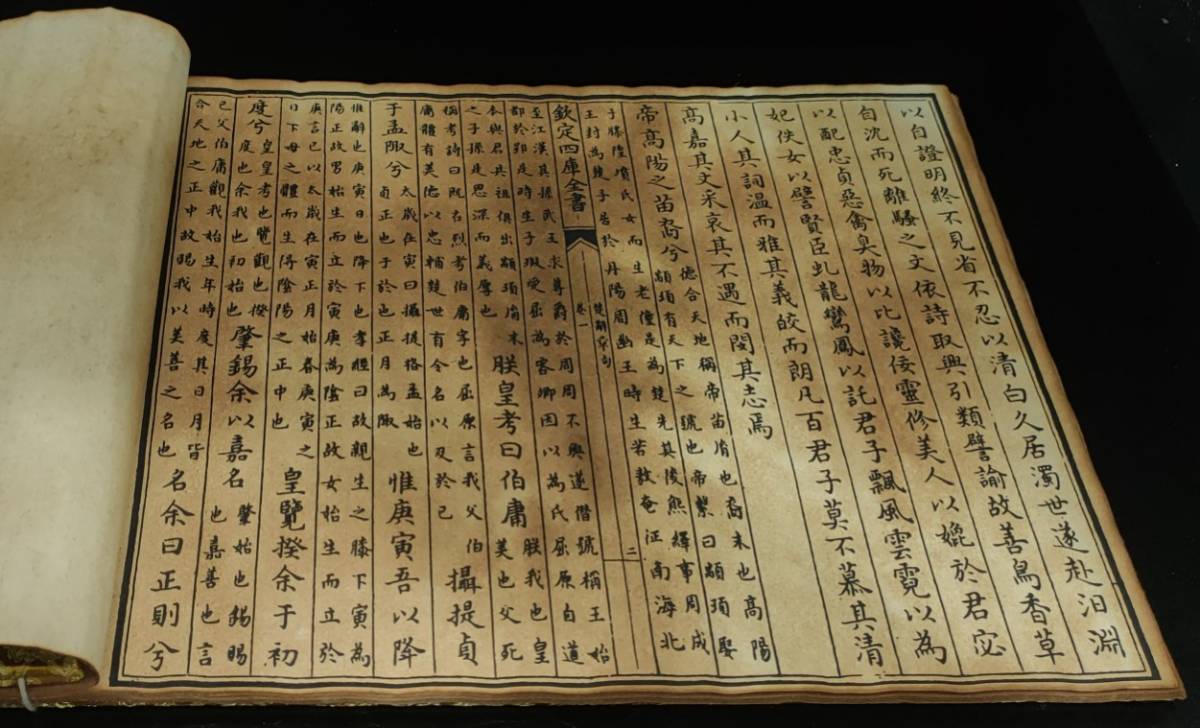 以自證明終不見省不忍以清白久居濁世遂赴汨淵
自沈而死離騷之文依詩取興引類譬諭故善鳥香草
以配忠貞惡禽臭物以比讒佞靈修美人以媲於君宓
妃佚女以譬賢臣虬龍鸞鳳以託君子飄風雲霓以為
小人其詞溫而雅其義皎而朗凡百君子莫不慕其清
高嘉其文采哀其不遇而閔其志焉
帝高陽之苗裔兮
德合天地稱帝苗胤也裔末也高陽
顓頊有天下之號也帝繫曰顓頊娶
于滕隍墳氏女而生老僮是為楚先其後熊繹事周成
王封為楚子居於丹陽周幽王時生若敖奄征南海北
欽定四庫全書
楚辭章句
卷一
二
至江漢其孫武王求尊爵於周周不與遂僭號稱王始
都於郢是時生子瑕受屈為客卿因以為氏屈原自道
本與君共祖俱出顓頊胤末
之子孫是恩深而義厚也
朕皇考曰伯庸
朕我也皇
美也父死
稱考詩曰既右烈考伯庸字也屈原言我父伯
庸體有美德以忠輔楚世有令名以及於己
攝提貞
于孟陬兮
太歲在寅曰攝提格孟始也
貞正也于於也正月為陬
惟庚寅吾以降
惟辭也庚寅日也降下也孝經曰故親生之膝下寅為
陽正故男始生而立於寅庚為陰正故女始生而立於
庚言己以太歲在寅正月始春庚寅之
日下母之體而生得陰陽之正中也
皇覽揆余于初
度兮
皇皇考也覽觀也揆
度也余我也初始也
肇錫余以嘉名
肇始也錫賜
也嘉善也言
己父伯庸觀我始生年時度其日月皆
合天地之正中故賜我以美善之名也
名余曰正則兮